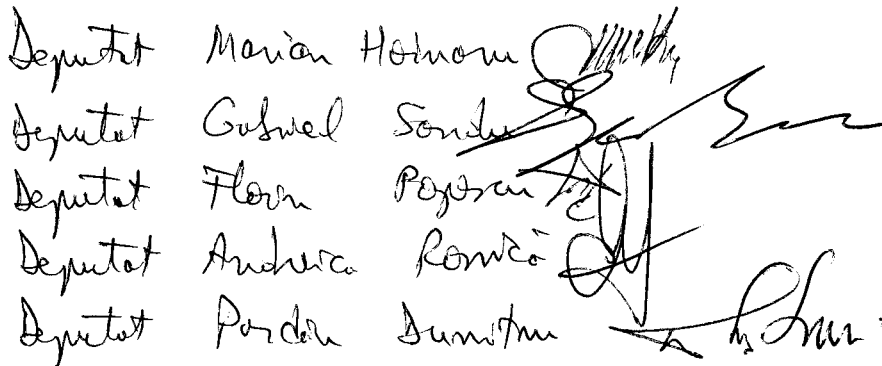 Deputat Marian Hoinaru
Deputat Gabriel Sandu
Deputat Florin Popescu
Deputat Andreica Romică
Deputat Pardău Dumitru